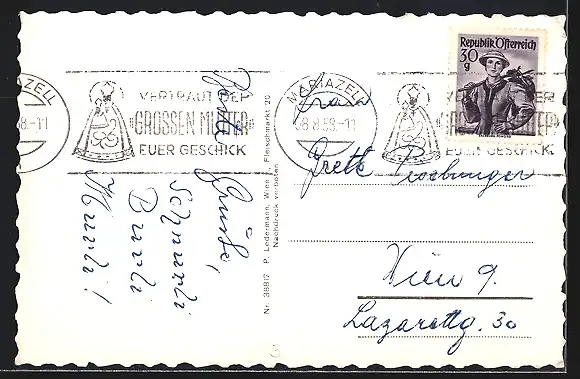 MARIAZELL
8.-11
VERTRAUT DER
"GROSSEN MUTTER"
EUER GESCHICK
MARIAZELL
8.8.58.-11
VERTRAUT DER
"GROSSEN MUTTER"
EUER GESCHICK
Republik Österreich
30
g
Grüße,
Schnurli
Burli
Murli!
Nr. 38817 P. Ledermann, Wien I, Fleischmarkt 20
Nachdruck verboten
Frau
Gretl
Wien 9.
Lazarettg. 30